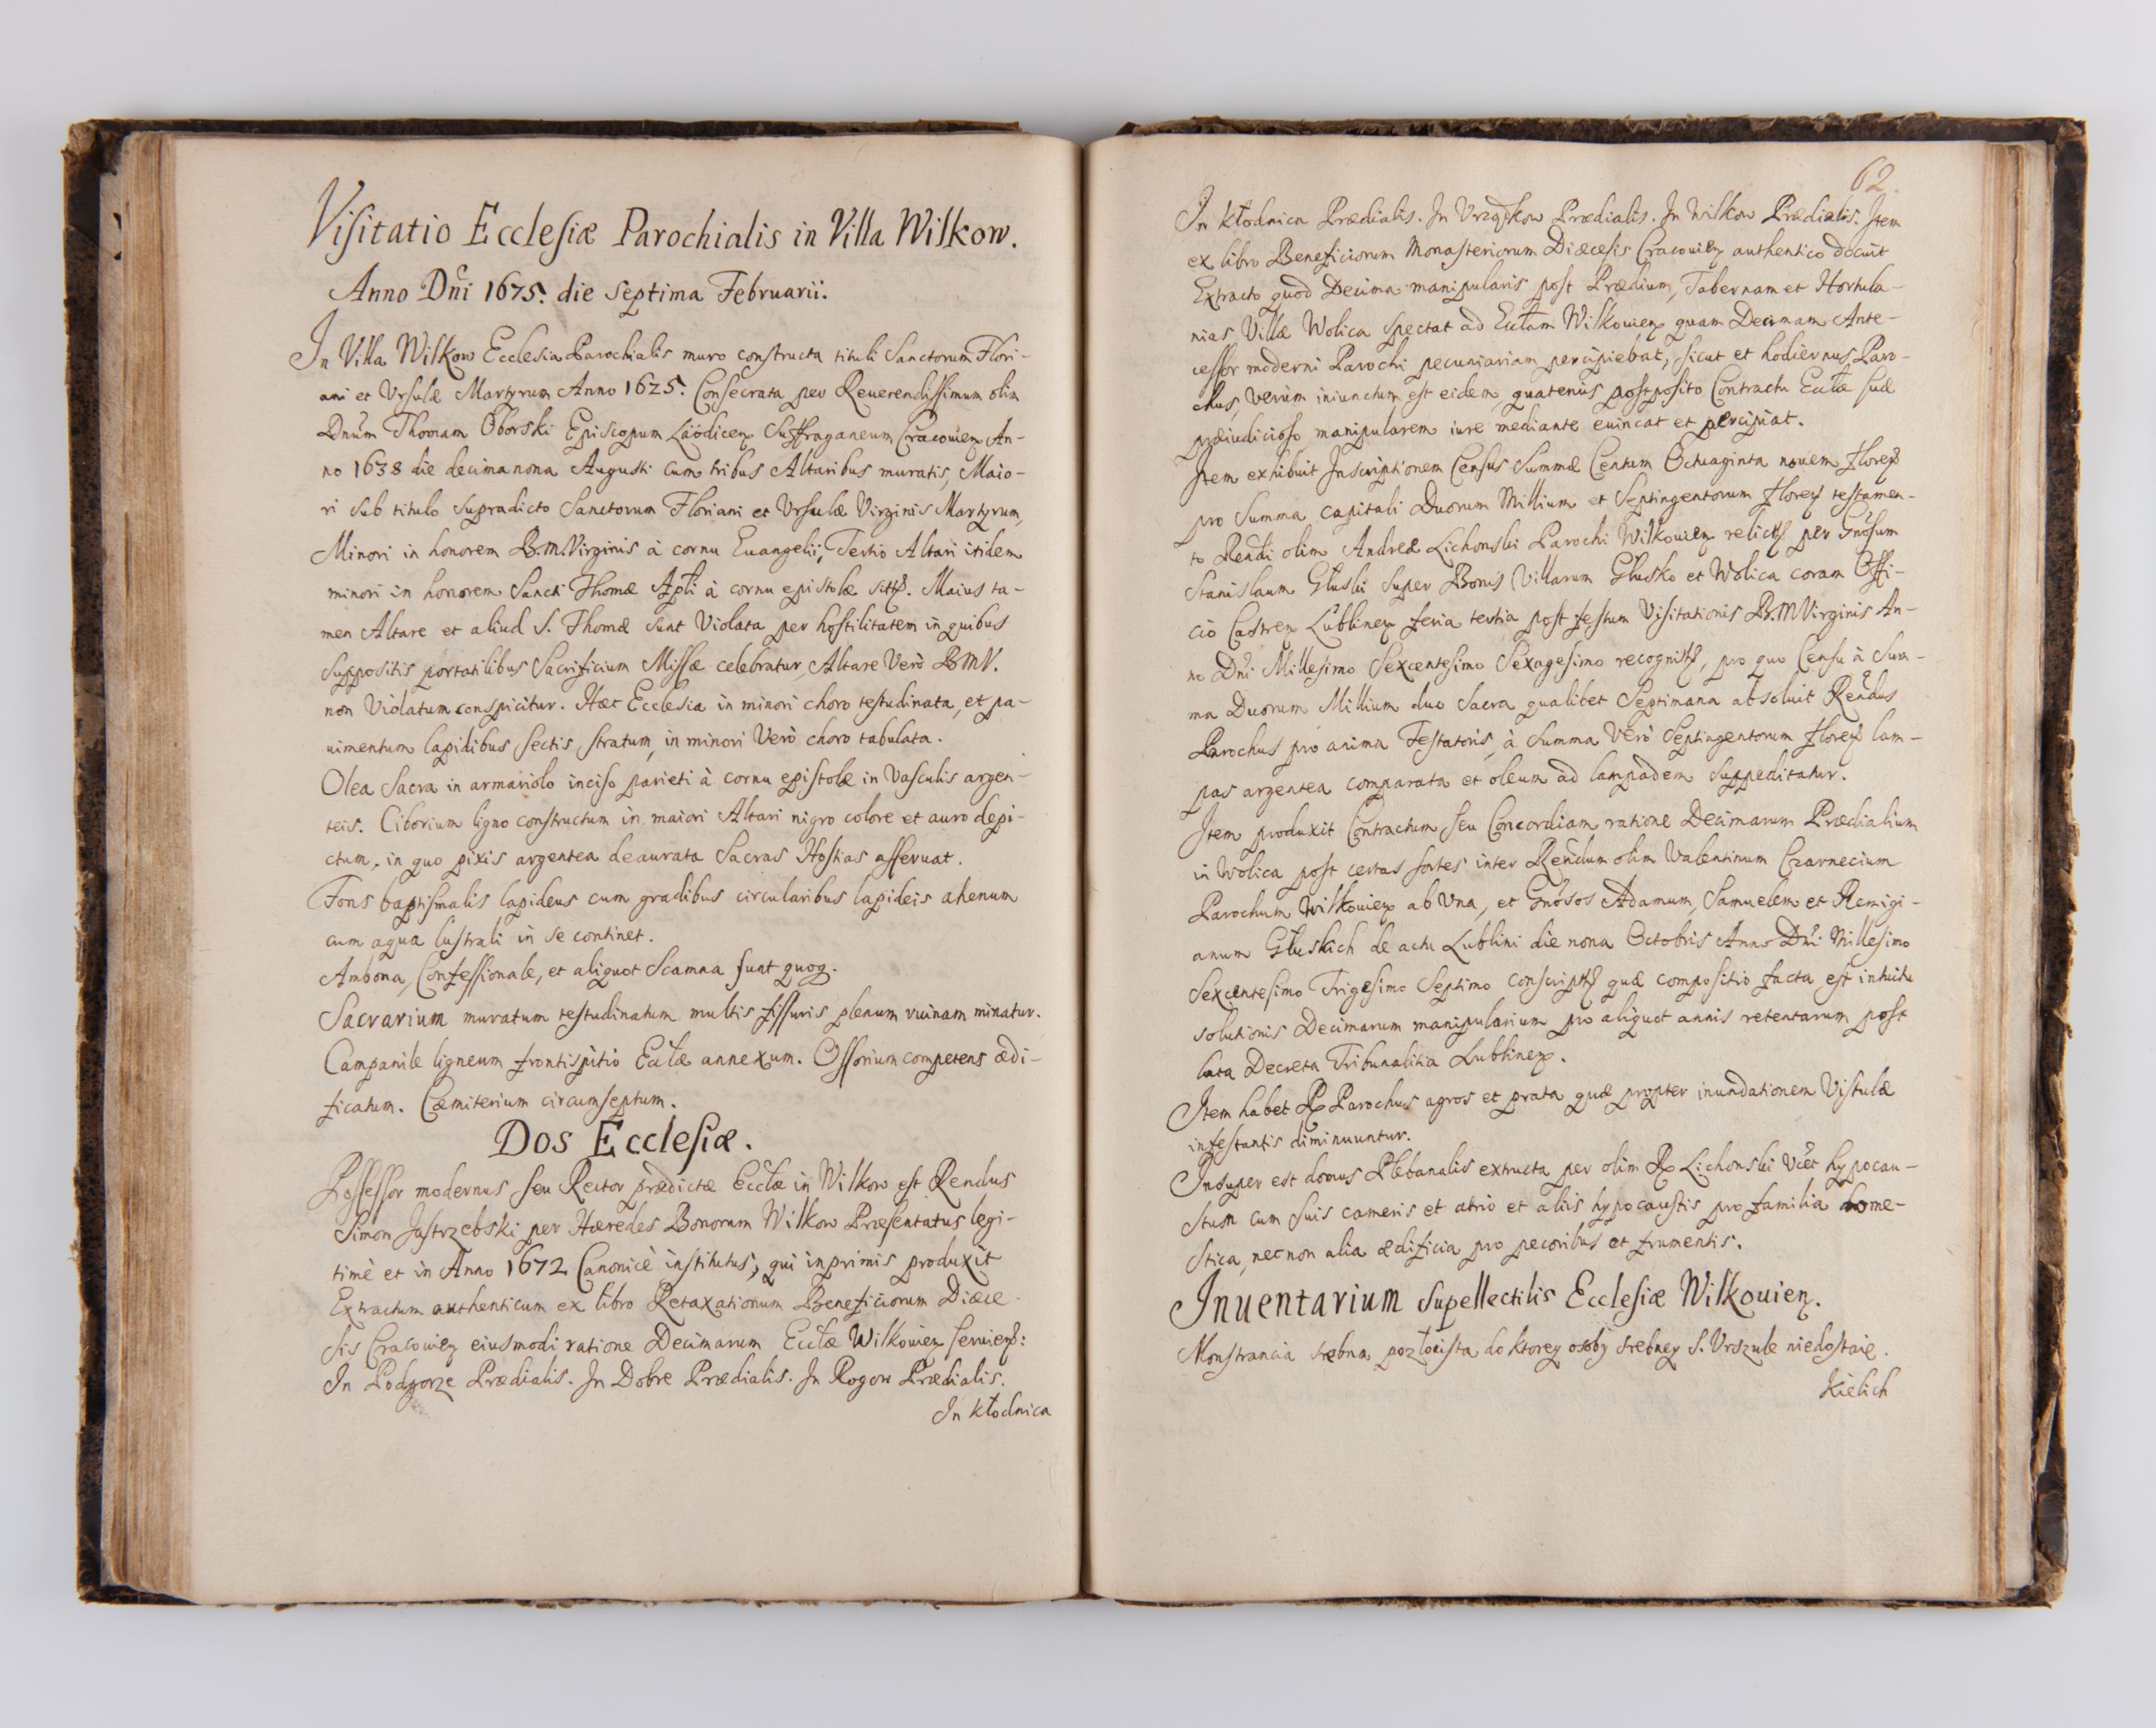 Visitatio Ecclesiæ Parochialis in Villa Wilkow.
Anno Dñi 1675. die septima Februarii.
In Villa Wilkow Ecclesia Parochialis muro constructa tituli Sanctorum Flori-
ani et Ursulæ Martyrum Anno 1625. Consecrata per Reuerendissimum olim
Dnūm Thomam Oborski Episcopum Laödiceñ Suffraganeum Cracouieñ An-
no 1638 die decima nona Augusti cum tribus Altaribus muratis, Maio-
ri sub titulo supradicto Sanctorum Floriani et Ursulæ Virginis Martyrum,
Minori in honorem B.M.Virginis à cornu Euangelii, Tertio Altari itidem
minori in honorem Sancti Thomæ Apli à cornu epistolæ sitꝭ. Maius ta-
men Altare et aliud S. Thomæ sunt Violata per hostilitatem in quibus
suppositis portatilibus Sacrificium Missæ celebratur, Altare Verò BMV.
non Violatum conspicitur. Hæc Ecclesia in minori choro testudinata, et pa-
uimentum lapidibus sectis stratum, in minori Verò choro tabulata.
Olea Sacra in armariolo inciso parieti à cornu epistolæ in Vasculis argen-
teis. Ciborium ligno constructum in maiori Altari nigro colore et auro depi-
ctum, in quo pixis argentea deaurata Sacras Hostias asseruat.
Fons baptismalis lapideus cum gradibus circularibus lapideis ahenum
cum aqua lustrali in se continet.
Ambona, Confessionale, et aliquot Scamna sunt quoq.
Sacrarium muratum testudinatum multis fissuris plenum ruinam minatur.
Campanile ligneum frontispitio Eccłæ annexum. Ossorium competens ædi-
ficatum. Cæmiterium circumseptum.
Dos Ecclesiæ.
Possessor modernus seu Rector prædictæ Eccłæ in Wilkow est Rendus
Simon Jastrzebski per Hæredes Bonorum Wilkow Præsentatus legi-
timè et in Anno 1672 Canonicè institutus, qui inprimis produxit
Extractum authenticum ex libro Retaxationum Beneficiorum Diæce-
sis Cracouieñ eiusmodi ratione Decimarum Eccłæ Wilkouieñ seruieñ:
In Podgorze Prædialis. In Dobre Prædialis. In Rogow Prædialis.
In Kłodnica
62.
In Kłodnica Prædialis. In Vrząkow Prædialis. In Wilkow Prædialis. Item
ex libro Beneficiorum Monasteriorum Diæcesis Cracouieñ authentico docuit
Extracto quod Decima manipularis post Prædium, Tabernam et Hortula-
nias Villæ Wolica spectat ad Eccłam Wilkouieñ quam Decimam Ante-
cessor moderni Parochi pecuniariam percipiebat, sicut et hodiernus Paro-
chus, verùm iniunctum est eidem, quatenùs postposito Contractu Eccłæ suæ
præiudicioso manipularem iure mediante euincat et percipiat.
Item exhibuit Inscriptionem Census Summæ Centum Octuaginta nouem floreñ
pro Summa capitali Duorum Millium et Septingentorum floreñ testamen-
to Rendi olim Andreæ Lichonski Parochi Wilkouieñ relictꝭ per Gnosum
Stanislaum Głuski super Bonis Villarum Głusko et Wolica coram Offi-
cio Castreñ Lublineñ feria tertia post festum Visitationis B.M Virginis An-
no Dñi Millesimo Sexcentesimo Sexagesimo recognitꝭ, pro quo Censu à Sum-
ma Duorum Millium duo Sacra qualibet Septimana absoluit Rendus
Parochus pro anima Testatoris, à Summa Verò Septingentorum floreñ lam-
pas argentea comparata et oleum ad lampadem suppeditatur.
Item produxit Contractum seu Concordiam ratione Decimarum Prædialium
in Wolica post certas sortes inter Rendum olim Valentinum Czarnecium
Parochum Wilkouieñ ab Una, et Gnosos Adamum, Samuelem et Remigi-
anum Głuskich de actu Lublini die nona Octobris Anno Dñi Millesimo
Sexcentesimo Trigesimo Septimo conscriptꝭ quæ compositio facta est intuitu
solutionis Decimarum manipularium pro aliquot annis retentarum post
lata Decreta Tribunalitia Lublineñ.
Item habet R Parochus agros et prata quæ propter inundationem Vistulæ
infestantis diminuuntur.
Insuper est domus Plebanalis extructa per olim R Lichonski Vicet hypocau-
stum cum suis cameris et atrio et aliis hypocaustis pro familia dome-
stica, necnon alia ædificia pro pecoribus et frumentis.
Inuentarium supellectilis Ecclesiæ Wilkouieñ.
Monstrancia srebna pozłocista do ktorey osoby srebney S. Vrszule niedostaie.
Kielich